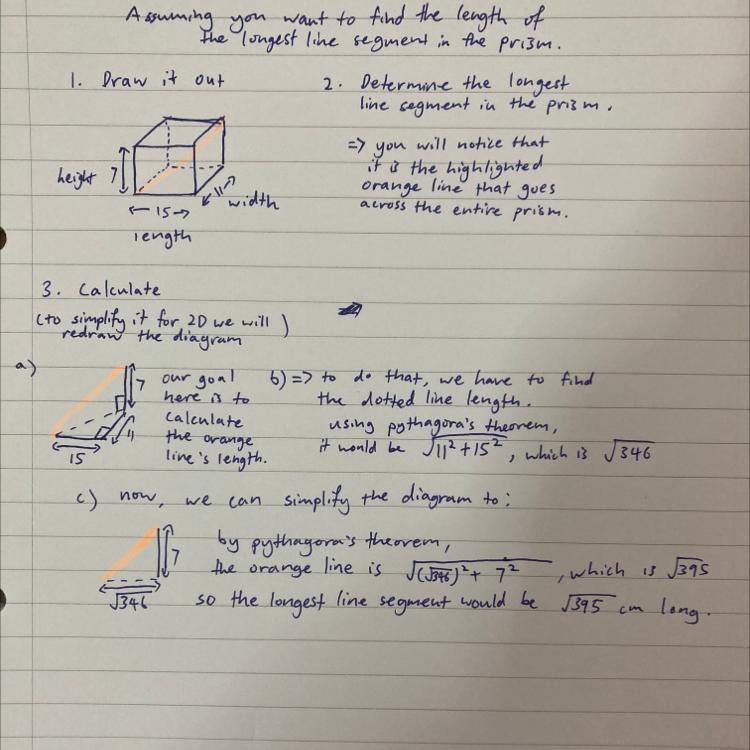 Assuming you want to find the length of
the longest line segment in the pri3m.
1. Draw it out
height 7
11
width
15
length
2. Determine the longest
line segment in the pri3m.
=> you will notice that
it is the highlighted
orange line that goes
across the entire prism.
3. Calculate
(to simplify it for 2D we will
redraw the diagram)
a)
7
11
15
our goal
here is to
calculate
the orange
line's length.
b) => to do that, we have to find
the dotted line length.
using pythagora's theorem,
it would be √11²+15², which is √346
c) now, we can simplify the diagram to:
7
√346
by pythagora's theorem,
the orange line is √(√346)²+ 7², which is √395
so the longest line segment would be √395 cm long.